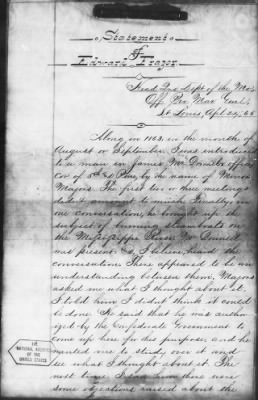 Statement
of
Edward Frazor.
Head Qrs Dept of the Mo.
Off. Pro. Mar. Genl.
St Louis, Apl 29, 65
Along in 1863, in the month of
August or September, I was introduced
to a man in James Mc
cor of 5th & Pine, by the name of Minor
Majors. The first two or three meetings
didn't amount to much. Finally, in
one conversation, he brought up the
subject of burning steamboats on
the Mississippi River.
was present & I believe, heard the
conversation. There appeared to be an
understanding between them. Majors
asked me what I thought about it.
I told him I didn't think it could
be done. He said that he was autho-
rized by the Confederate Government to
come up here for this purpose, and he
wanted me to study over it and
see what I thought about it. The
next time I saw him there were
some objections raised about the
THE
NATIONAL ARCHIVES
OF THE
UNITED STATES